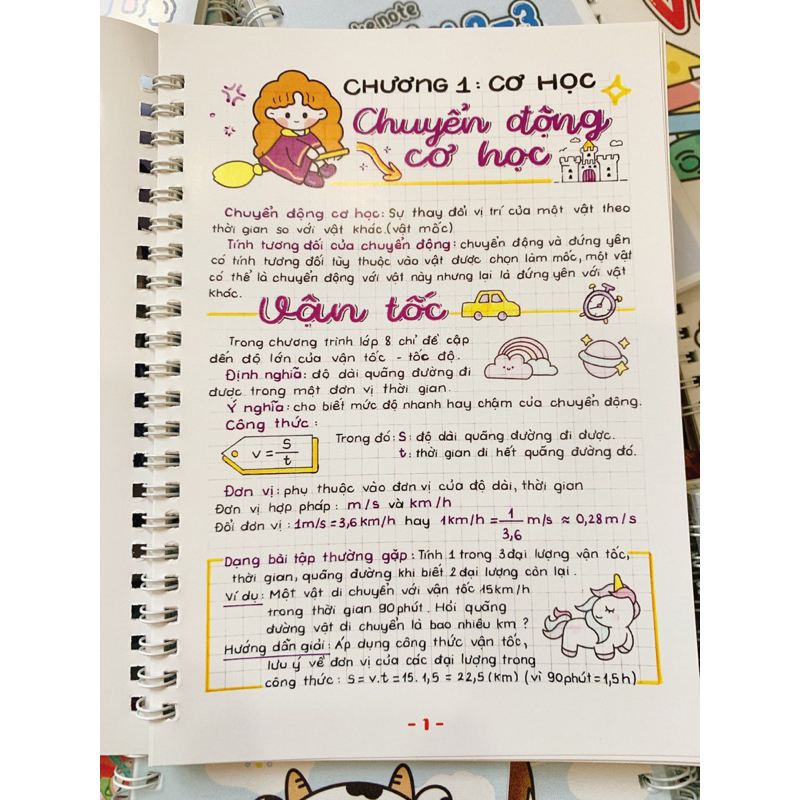 ke note
CHƯƠNG 1: CƠ HỌC
Chuyển động
cơ học
Chuyển động cơ học: Sự thay đổi vị trí của một vật theo
thời gian so với vật khác.(vật mốc)
Tính tương đối của chuyển động: chuyển động và đứng yên
có tính tương đối tùy thuộc vào vật được chọn làm mốc, một vật
có thể là chuyển động với vật này nhưng lại là đứng yên với vật
khác.
Vận tốc
Trong chương trình lớp 8 chỉ đề cập
đến độ lớn của vận tốc - tốc độ.
Định nghĩa: độ dài quãng đường đi
được trong một đơn vị thời gian.
Ý nghĩa: cho biết mức độ nhanh hay chậm của chuyển động.
Công thức:
v = S/t
Trong đó: S: độ dài quãng đường đi được.
t: thời gian đi hết quãng đường đó.
Đơn vị: phụ thuộc vào đơn vị của độ dài, thời gian
Đơn vị hợp pháp: m/s và km/h
Đổi đơn vị: 1m/s = 3,6 km/h hay 1km/h = 1/3,6 m/s ≈ 0,28m/s
Dạng bài tập thường gặp: Tính 1 trong 3 đại lượng vận tốc,
thời gian, quãng đường khi biết 2 đại lượng còn lại.
Ví dụ: Một vật di chuyển với vận tốc 15km/h
trong thời gian 90 phút. Hỏi quãng
đường vật di chuyển là bao nhiêu km?
Hướng dẫn giải: Áp dụng công thức vận tốc,
lưu ý về đơn vị của các đại lượng trong
công thức: S = v.t = 15. 1,5 = 22,5 (km) (vì 90phút = 1,5h)
- 1 -